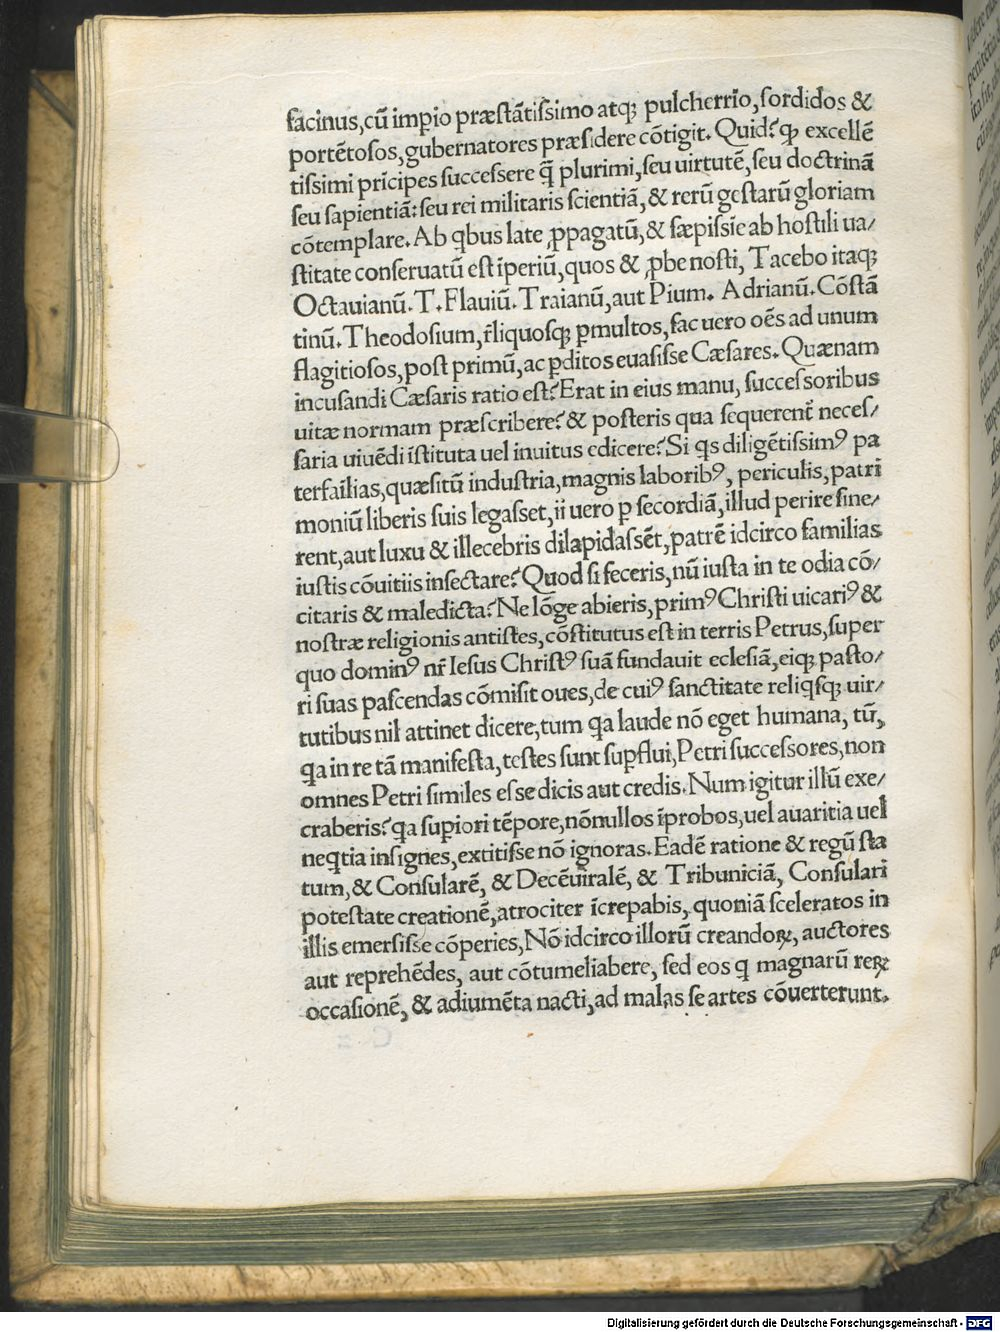 facinus,cū imꝑio præstātissimo atqꝫ pulcherrīo,sordidos &
portētosos,gubernatores præsidere cōtigit. Quid? ꝙ excellē
tissimi prīcipes successere q̄̄ plurimi,seu uirtutē,seu doctrinā
seu sapientiā:seu rei militaris scientiā, & rerū gestarū gloriam
cōtemplare. Ab qbus late ꝓpagatū, & sæpissīe ab hostili ua/
stitate conseruatū est īperiū,quos & ꝓbe nosti, Tacebo itaqꝫ
Octauianū. T. Flauiū. Traianū, aut Pium. Adrianū. Cōstā
tinū. Theodosium, r̄liquosqꝫ ꝑmultos, fac uero oēs ad unum
flagitiosos, post primū, ac ꝑditos euasisse Cæsares. Quænam
incusandi Cæsaris ratio est? Erat in eius manu, successoribus
uitæ normam præscribere? & posteris qua sequerent̄ neces/
saria uiuēdi īstituta uel inuitus edicere? Si qs diligētissimꝰ pa
terfāilias, quæsitū industria, magnis laboribꝰ, periculis, patri
moniū liberis suis legasset, ii uero ꝑ secordiā, illud perire sine/
rent, aut luxu & illecebris dilapidassēt, patrē idcirco familias
iustis cōuitiis insectare? Quod si feceris, nū iusta in te odia cō/
citaris & maledicta? Ne lōge abieris, primꝰ Christi uicariꝰ &
nostræ religionis antistes, cōstitutus est in terris Petrus, super
quo dominꝰ nr̄ Iesus Christꝰ suā fundauit eclesiā, eiqꝫ pasto/
ri suas pascendas cōmisit oues, de cuiꝰ sanctitate reliqsqꝫ uir/
tutibus nil attinet dicere, tum qa laude nō eget humana, tū,
qa in re tā manifesta, testes sunt suꝑflui, Petri successores, non
omnes Petri similes esse dicis aut credis. Num igitur illū exe/
craberis? qa suꝑiori tēpore, nōnullos īprobos, uel auaritia uel
neqtia insignes, extitisse nō ignoras. Eadē ratione & regū sta
tum, & Consularē, & Decēuiralē, & Tribuniciā, Consulari
potestate creationē, atrociter īcrepabis, quoniā sceleratos in
illis emersisse cōperies, Nō idcirco illorū creandoꝝ, auctores
aut reprehēdes, aut cōtumeliabere, sed eos q magnarū reꝝ
occasionē, & adiumēta nacti, ad malas se artes cōuerterunt.
Digitalisierung gefördert durch die Deutsche Forschungsgemeinschaft - DFG